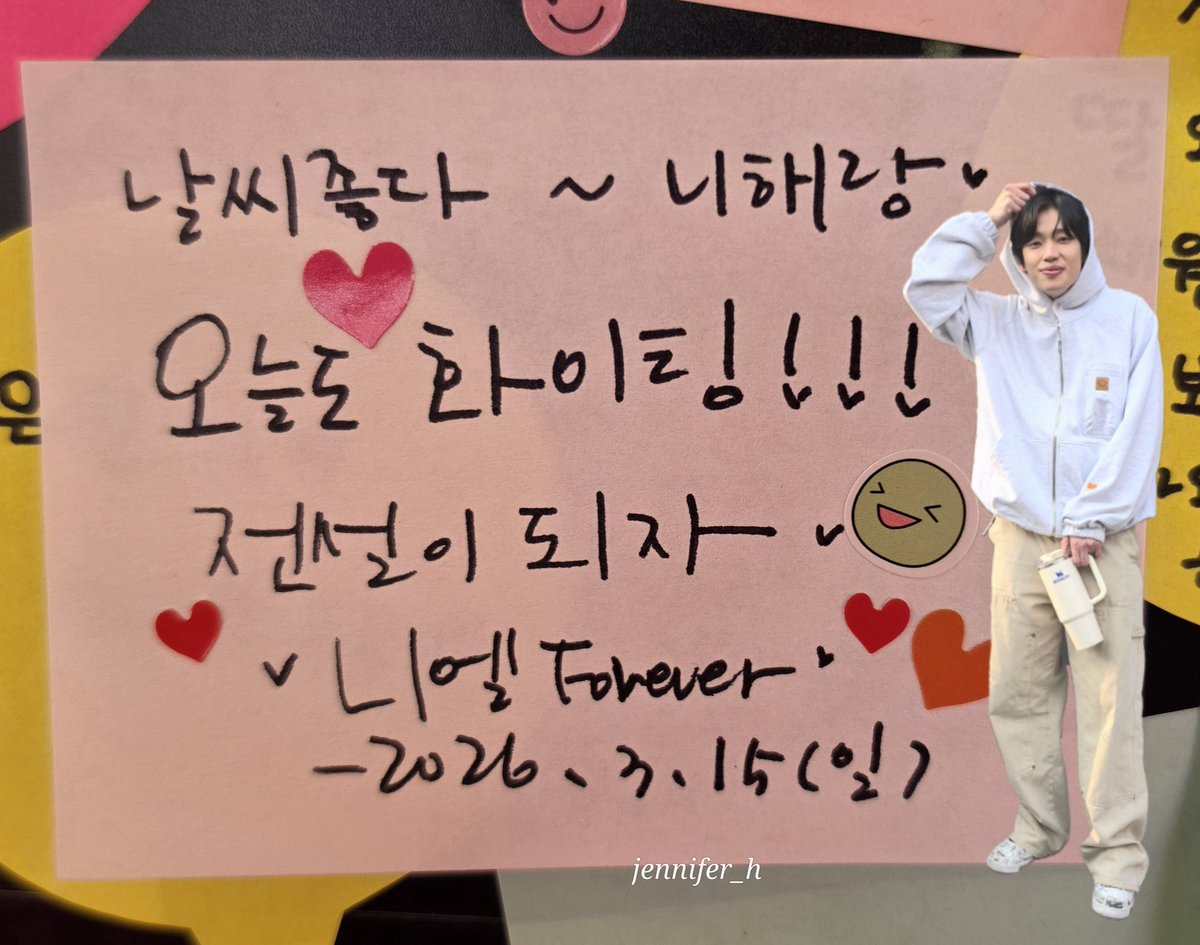 날씨좋다 ~ 니해랑
오늘도 화이팅!!!
전설이 되자
니엘 Forever
-2026.3.15(일)
jennifer_h